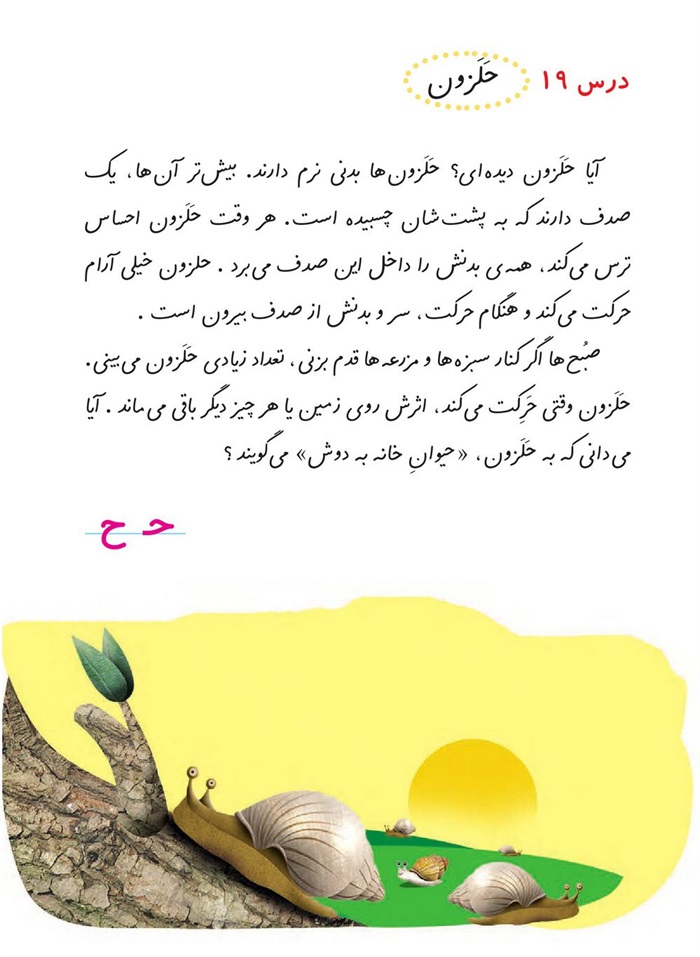 درس ۱۹ حَلَزون
آیا حَلَزون دیده‌ای؟ حَلَزون‌ها بدنی نرم دارند. بیش‌تر آن‌ها، یک
صدف دارند که به پشت‌شان چسبیده است. هر وقت حَلَزون احساس
ترس می‌کند، همه‌ی بدنش را داخل این صدف می‌برد . حلزون خیلی آرام
حرکت می‌کند و هنگام حرکت، سر و بدنش از صدف بیرون است .
صبُح‌ها اگر کنار سبزه‌ها و مزرعه‌ها قدم بزنی، تعداد زیادی حَلَزون می‌بینی.
حَلَزون وقتی حَرِکت می‌کند، اثرش روی زمین یا هر چیز دیگر باقی می‌ماند . آیا
می‌دانی که به حَلَزون، «حیوانِ خانه به دوش» می‌گویند ؟
حـ ح